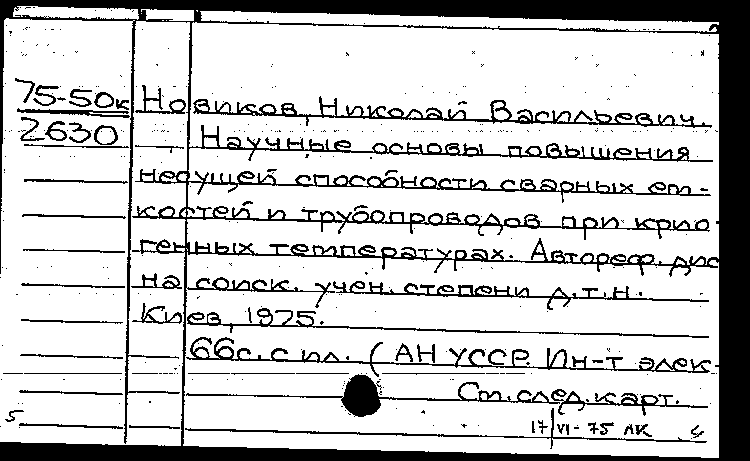 75-50к Новиков, Николай Васильевич.
2630 Научные основы повышения
несущей способности сварных ем-
костей и трубопроводов при крио-
генных температурах. Автореф. дис
на соиск. учен. степени д.т.н.
Киев, 1975.
66с. с ил. (АН УССР. Ин-т элек-
См. след. карт.
5 17/VI-75 ЛК